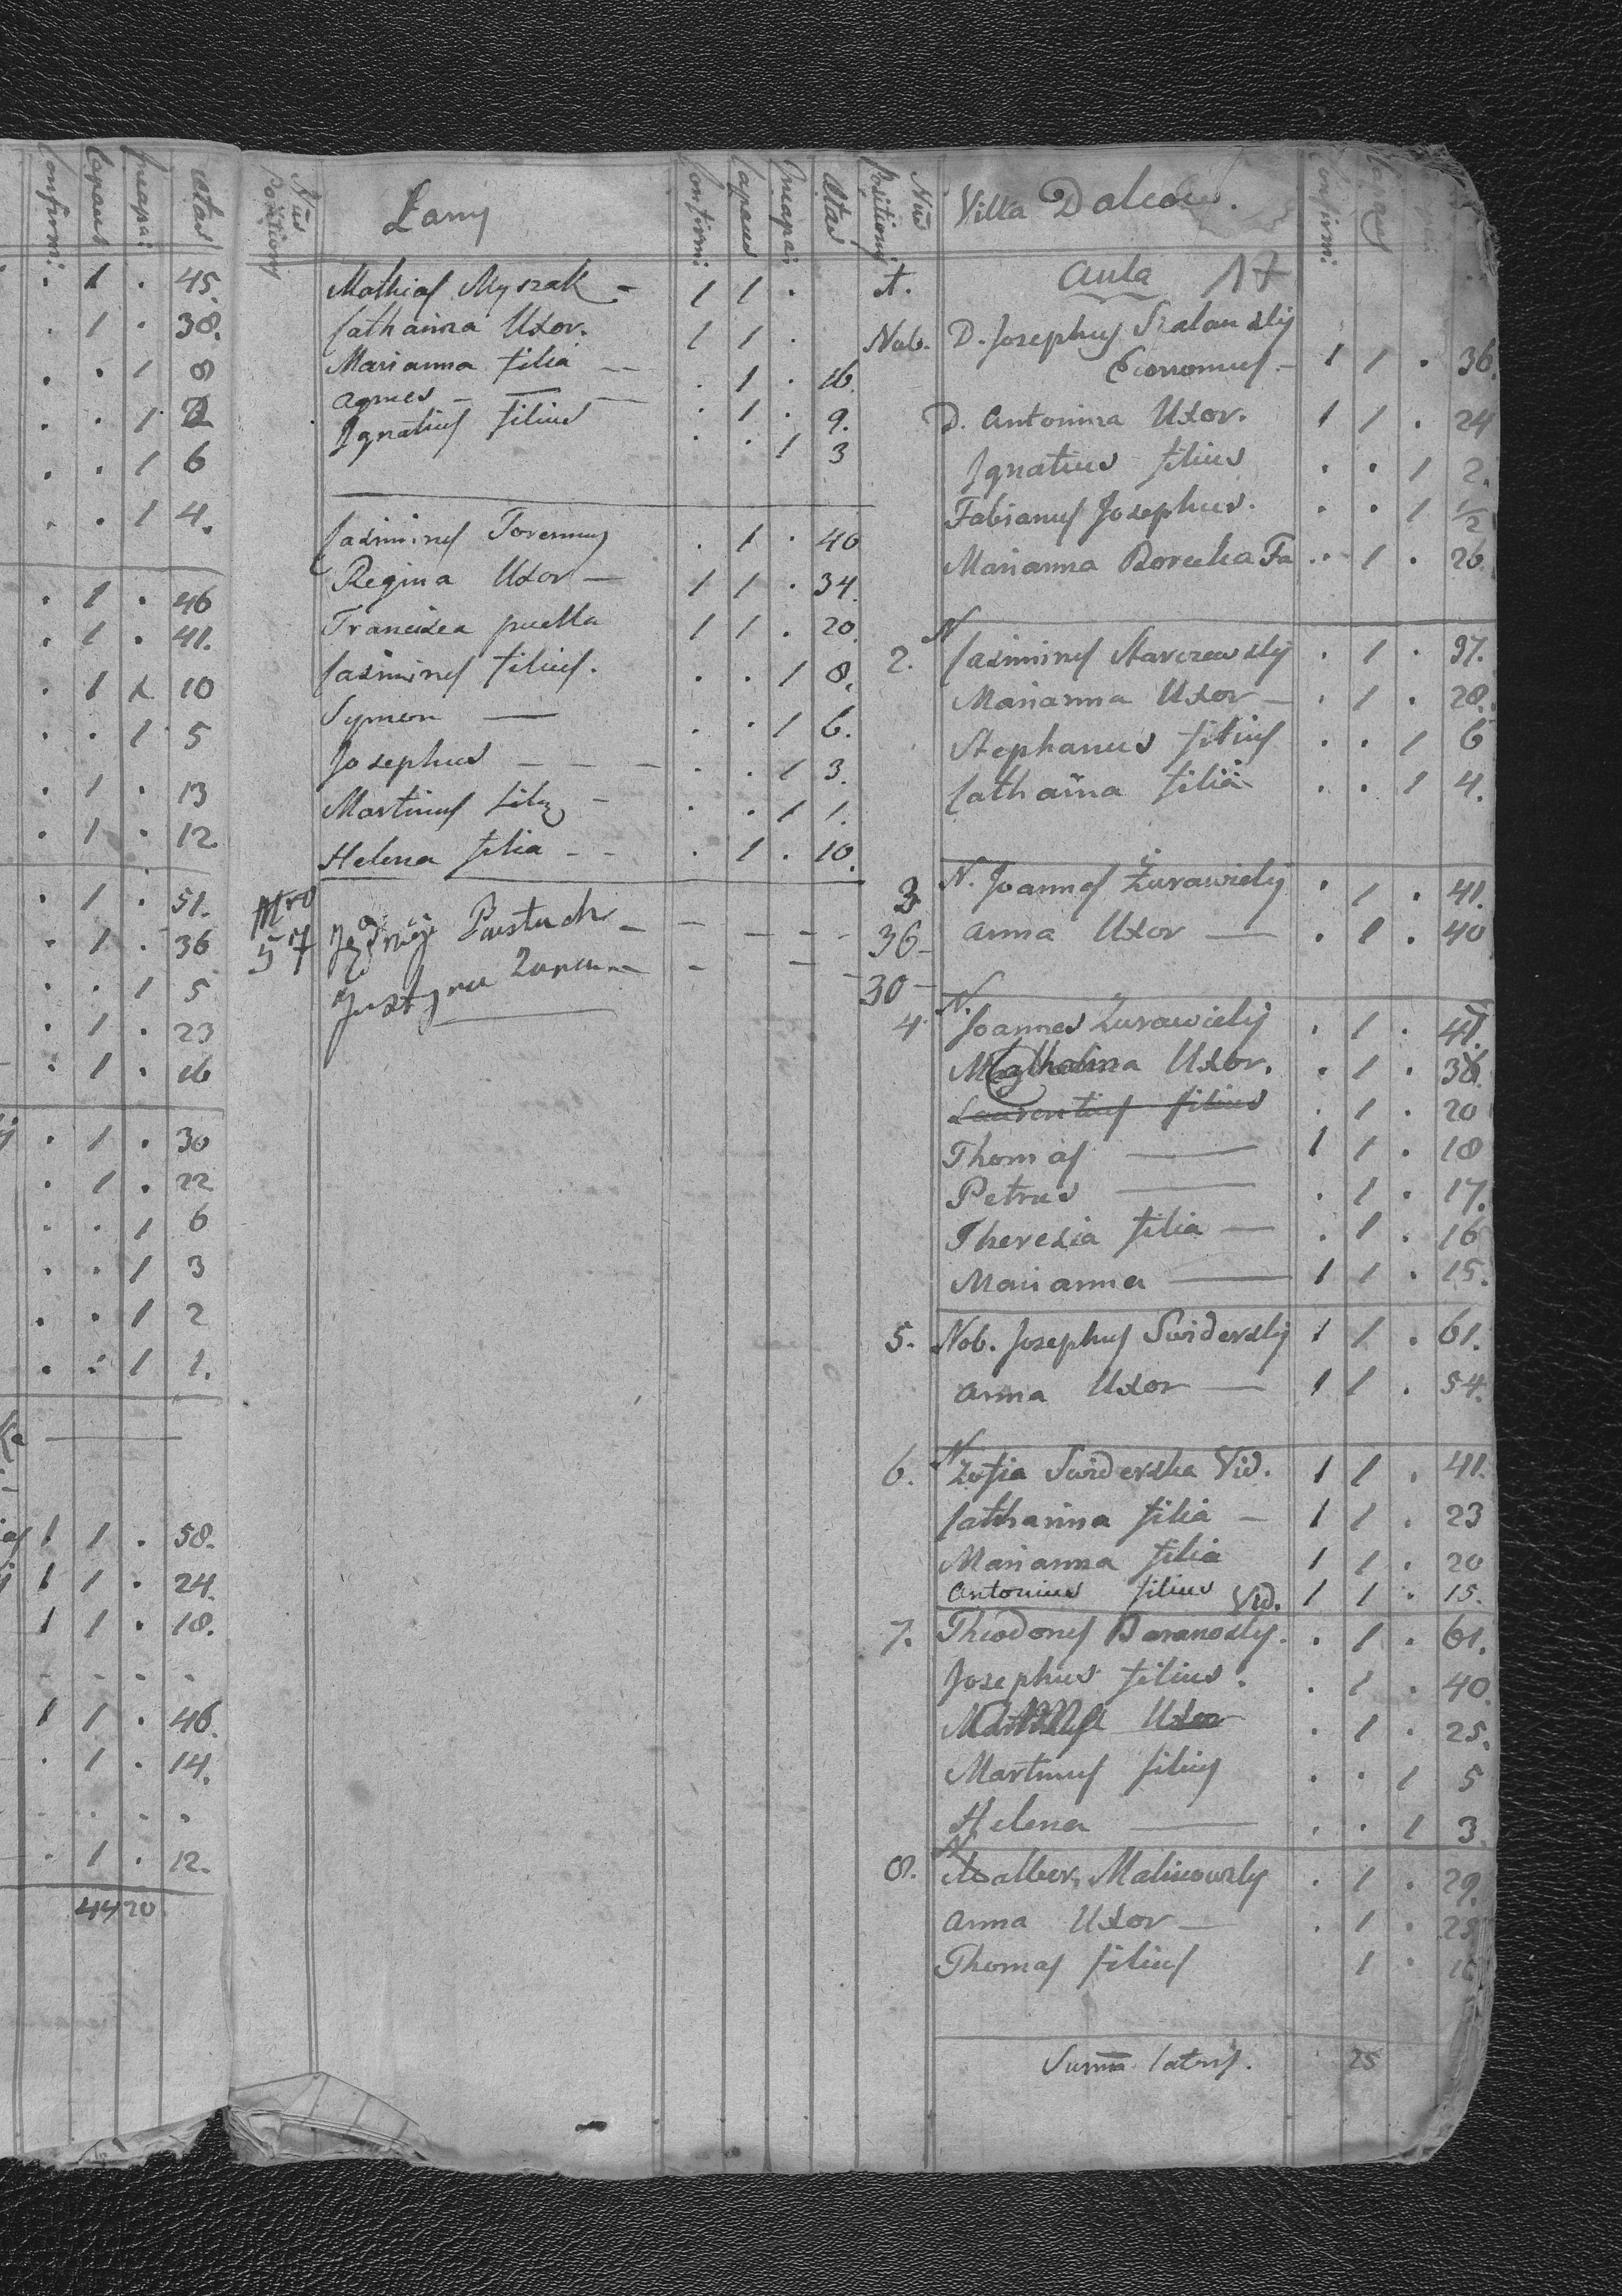 Confirm: Capaces Incapa: Aetas
. 1 . 45.
. 1 . 38.
. . 1 8
. . 1 2
. . 1 6
. . 1 4.
. 1 . 46
. 1 . 41.
. 1 10
. . 1 5
. 1 . 13
. 1 . 12
. 1 . 51.
. 1 . 36
. . 1 5
. 1 . 23
. 1 . 16
. 1 . 30
. 1 . 22
. . 1 6
. . 1 3
. . 1 2
. . 1 1.
1 1 . 58.
1 1 . 24.
1 1 . 18.
. . . .
1 1 . 46.
. 1 . 14.
. . . .
. 1 . 12.
44 20
Nus Positionis Łany Confirm: Capaces Incapa: Aetas
Mathias Myszak - 1 1 .
Catharina Uxor. 1 1 .
Marianna filia -- . 1 . 16.
Agnes - — — . 1 . 9.
Ignatius filius . . 1 3
Casimirus . 1 . 40
Regina Uxor — 1 1 . 34.
Francisca puella 1 1 . 20.
Casimirus filius. . . 1 8.
Symon — . . 1 6.
Josephus - - - . . 1 3.
Martinus filiq - . . 1 1.
Helena filia - - . 1 . 10.
Nro
57 Pastuch - - - - - 36-
Justyna - - - 30-
Nus Positionis Villa Dalcow. Confirm: Capaces
1. Aula 17
Nob. D. Josephus
Economus - 1 1 . 36.
D. Antonina Uxor. 1 1 . 24
Ignatius filius . . 1 2.
Fabianus Josephus. . . 1 1/2
Marianna Borecka Fa . 1 . 26.
N
2. Casimirus Starczewsky . 1 . 37.
Marianna Uxor - . 1 . 28.
Stephanus filius . . 1 6
Catharina filia . . 1 4.
3 N. Joannes Żurawicky . 1 . 41.
Anna Uxor — . 1 . 40
N.
4 Joannes Zurawicky . 1 . 41.
Catharina Uxor. . 1 . 38.
Laurentius filius . 1 . 20
Thomas — 1 1 . 18
Petrus — . 1 . 17.
Theresia filia — . 1 . 16
Marianna — 1 1 . 15.
5. Nob. Josephus Swidersky 1 1 . 61.
Anna Uxor — 1 1 . 54.
N
6. Zofia Swiderska Vid. 1 1 . 41.
Catharina filia - 1 1 . 23
Marianna filia 1 1 . 20
Antonius filius 1 1 . 15.
Vid.
7. Theodorus Baranosky. . 1 . 61.
Josephus filius. . 1 . 40.
Uxor . 1 . 25.
Martinus filius . . 1 5
Helena — . . 1 3
N
8. Adalber. Malinowsky . 1 . 29.
Anna Uxor — . 1 .
Thomas filius 1 .
Summa lateris. 25